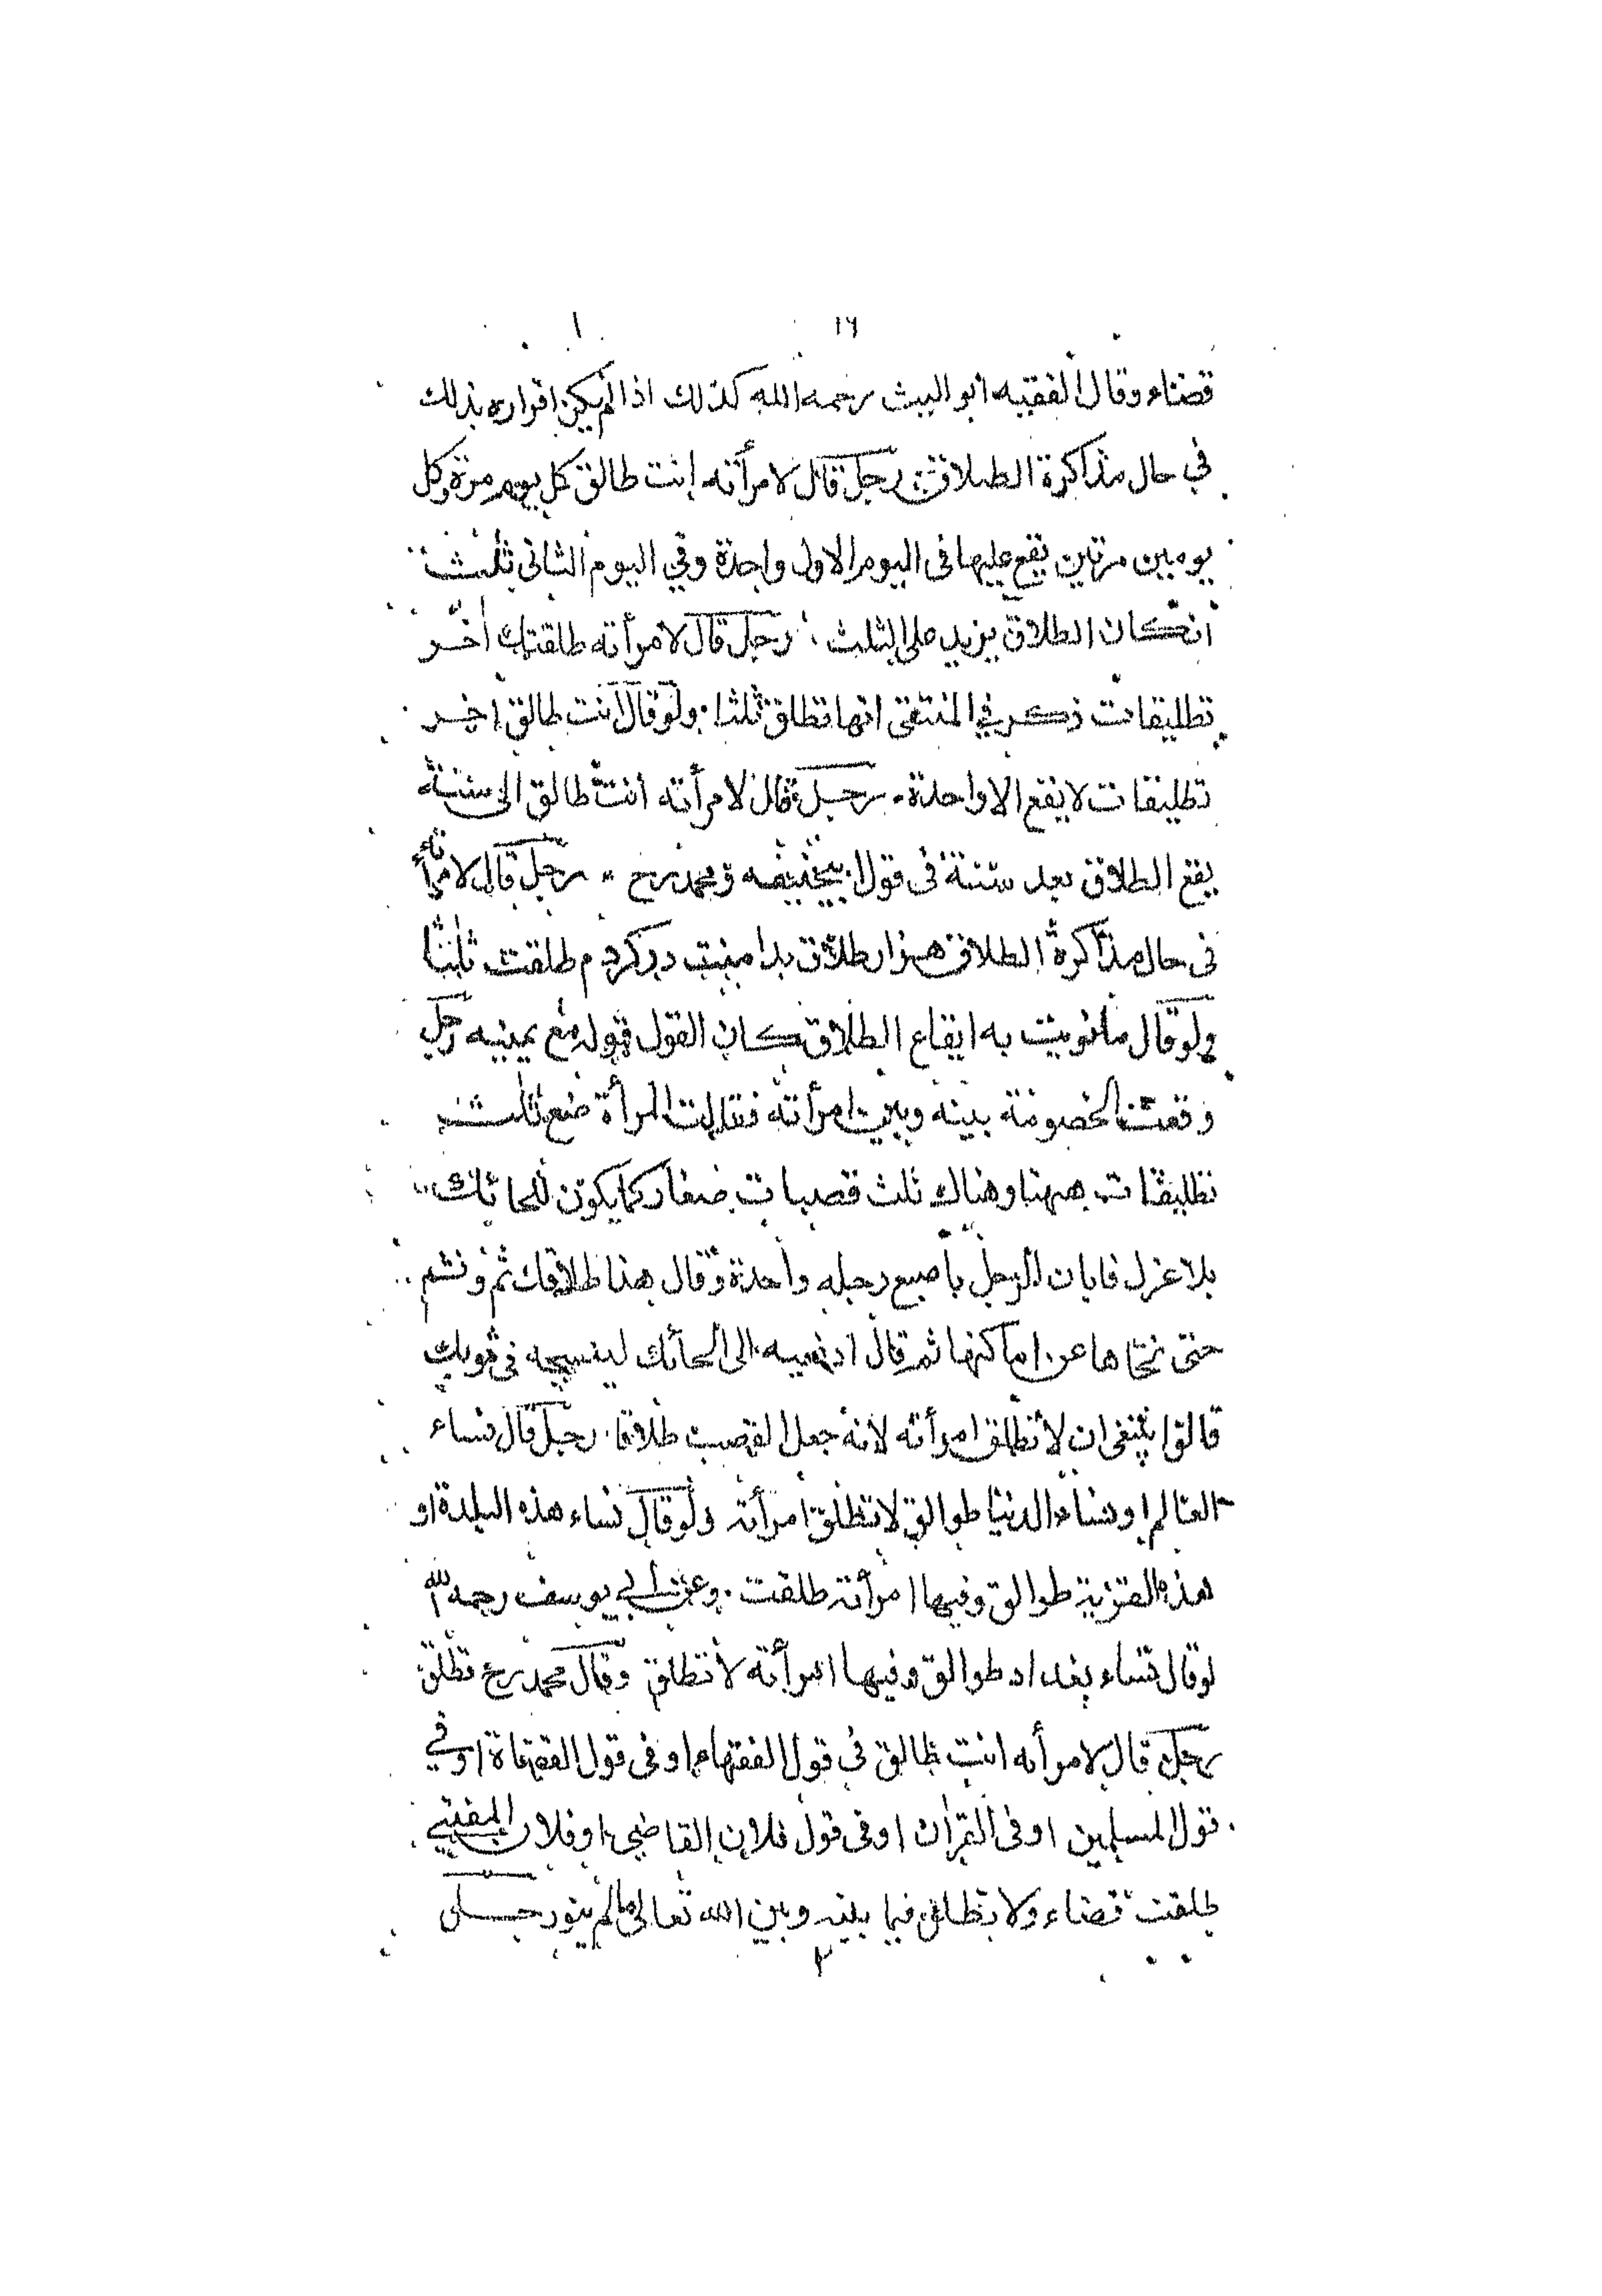 ١٦
قضاء وقال الفقيه ابو الليث رحمه الله كذلك اذا لم يكن اقراره بذلك
في حال مذاكرة الطلاق رجل قال لامرأته انت طالق كل يوم مرة وكل
يومين مرتين يقع عليها فى اليوم الاول واحدة وفي اليوم الثانى ثلث
انكان الطلاق يزيد على الثلث رجل قال لامرأته طلقتك اخر
تطليقات ذكر في المنتقى انها تطلق ثلثا ولو قال انت طالق اخر
تطليقات لا يقع الا واحدة رجل قال لامرأته انت طالق الى سنة
يقع الطلاق بعد سنة فى قول ابيحنيفه ومحمد رح رجل قال لامرأته
فى حال مذاكرة الطلاق هزار طلاق بدامنت در كردم طلقت ثلثا
ولو قال ما نويت به ايقاع الطلاق كان القول قوله مع يمينه رجل
وقعت الخصومة بينه وبين امرأته فقالت المرأة ضع ثلث
تطليقات ههنا وهناك ثلث قصبات صغار كما يكون للحائك
بلا غزل فابان الرجل باصبع رجله واحدة وقال هذا طلاقك ثم وثم
حتى نحاها عن اماكنها ثم قال اذهبيه الى الحائك لينسجه فى ثوبك
قالوا ينبغى ان لا تطلق امرأته لانه جعل القصب طلاقا رجل قال نساء
العالم او نساء الدنيا طوالق لا تطلق امرأته ولو قال نساء هذه البلدة او
هذه القرية طوالق وفيها امرأته طلقت وعن ابي يوسف رحمه الله
لو قال نساء بغداد طوالق وفيها امرأته لا تطلق وقال محمد رح تطلق
رجل قال لامرأته انت طالق فى قول الفقهاء او فى قول القضاة او في
قول المسلمين او فى القرآن او فى قول فلان القاضى او فلان المفتي
طلقت قضاء ولا تطلق فيما بينه وبين الله تعالى ما لم ينو رجل
٢